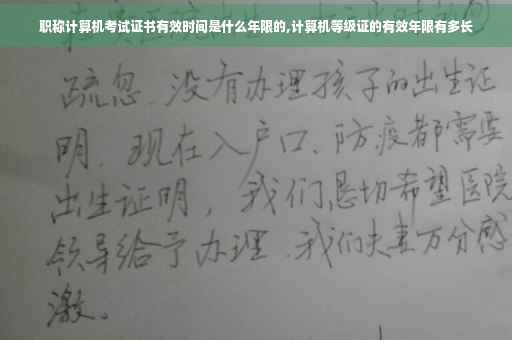 职称计算机考试证书有效时间是什么年限的,计算机等级证的有效年限有多长
疏忽、没有办理孩子的出生证
明. 现在入户口、防疫都需要
出生证明，我们恳切希望医院
领导给予办理. 我们夫妻万分感
激。